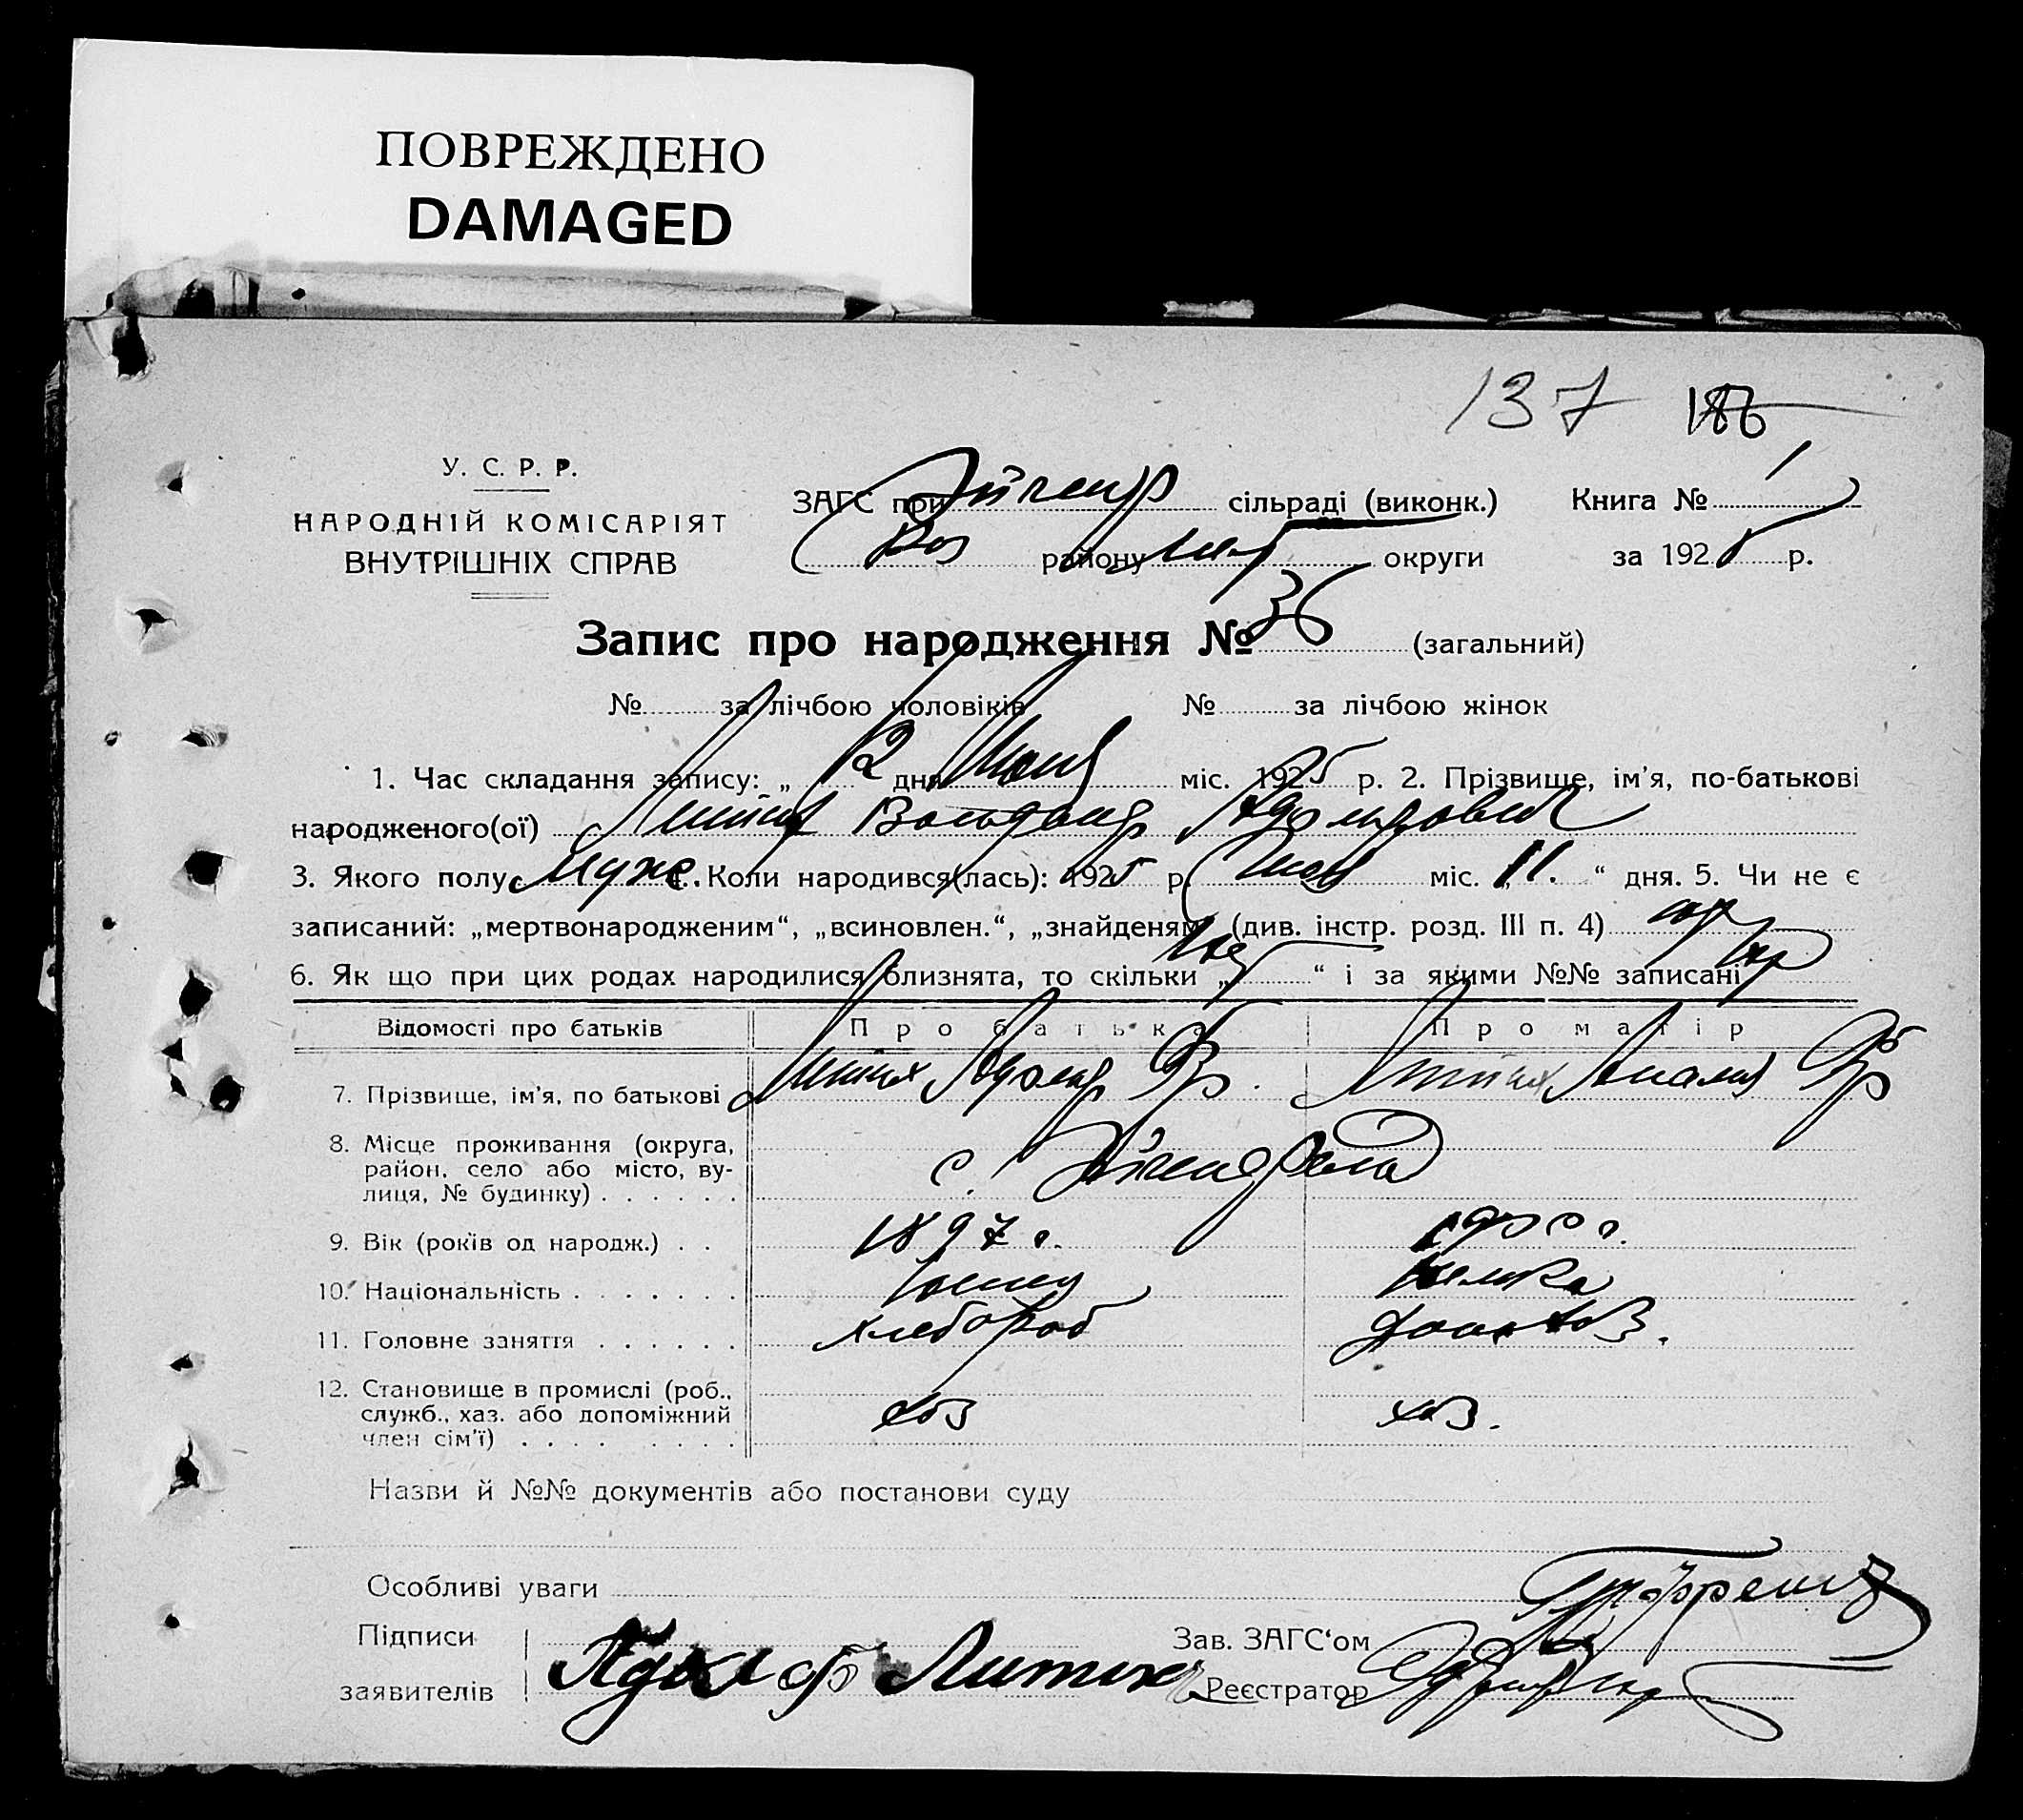 ПОВРЕЖДЕНО
DAMAGED
137 186
У. С. Р. Р.
НАРОДНІЙ КОМІСАРІЯТ
ВНУТРІШНІХ СПРАВ
ЗАГС при сільраді (виконк.) Книга № 1
району округи за 1925 р.
Запис про народження № 36 (загальний)
№ за лічбою чоловіків № за лічбою жінок
1. Час складання запису: „ 12 дня міс. 1925 р. 2. Прізвище, ім'я, по-батькові
народженого(ої) Адольфович
3. Якого полу Муже. 4. Коли народився(лась): 1925 р. міс. „ 11. “ дня. 5. Чи не є
записаний: „мертвонародженим“, „всиновлен.“, „знайденям“ (див. інстр. розд. III п. 4)
6. Як що при цих родах народилися близнята, то скільки „ “ і за якими №№ записані
Відомості про батьків Про батька Про матір
7. Прізвище, ім'я, по батькові Литих Адольф Фр. Литих Амалия Фр
8. Місце проживання (округа,
район, село або місто, ву-
лиця, № будинку) с. Эйгенфельд
9. Вік (років од народж.) 1897 г. 1900 г.
10. Національність немец немка
11. Головне заняття хлебороб домохоз.
12. Становище в промислі (роб.,
служб., хаз. або допоміжний
член сім'ї) хоз хоз.
Назви й №№ документів або постанови суду
Особливі уваги
Підписи
заявителів Адолф Литих
Зав. ЗАГС‘ом
Реєстратор